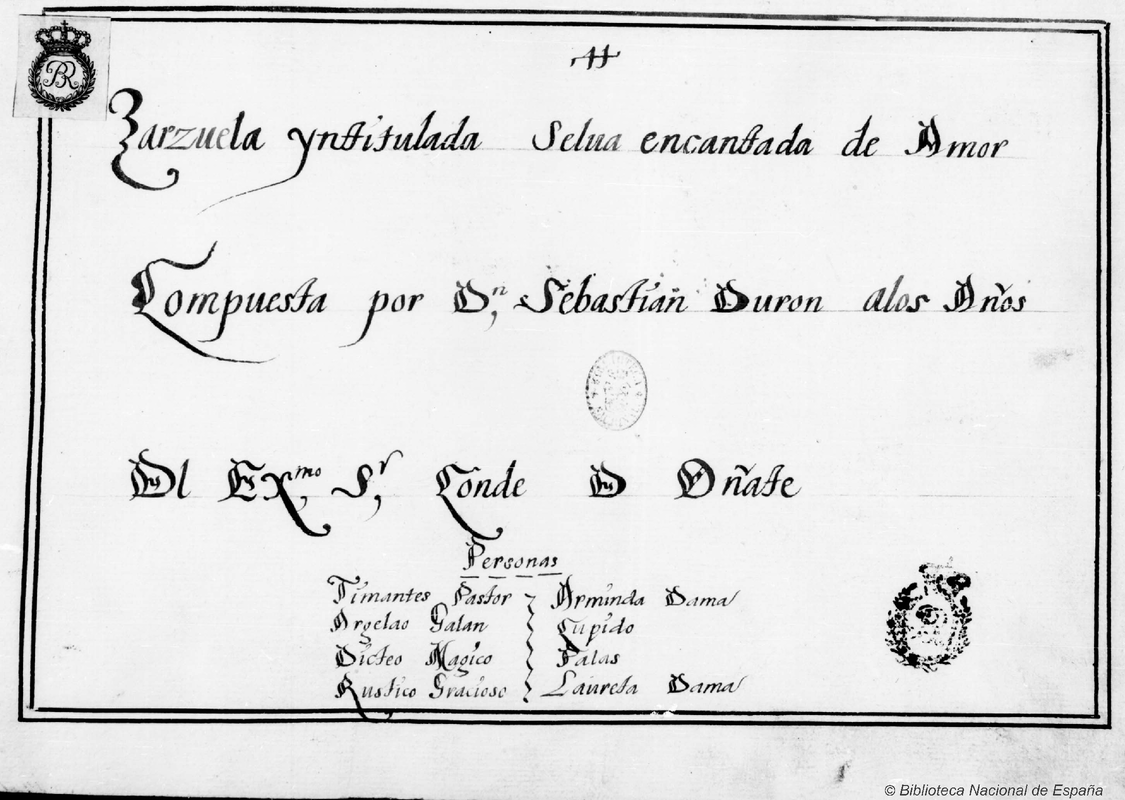 Zarzuela ynttitulada Selua encantada de Amor
Compuesta por Dn, Sebastian Duron alos Años
Del Exmo Sr, Conde De Oñate
Personas
Timantes Pastor Arminda Dama
Argelao Galan Cupido
Dicteo Magico Palas
Rustico Gracioso Laureta Dama
BR
© Biblioteca Nacional de España